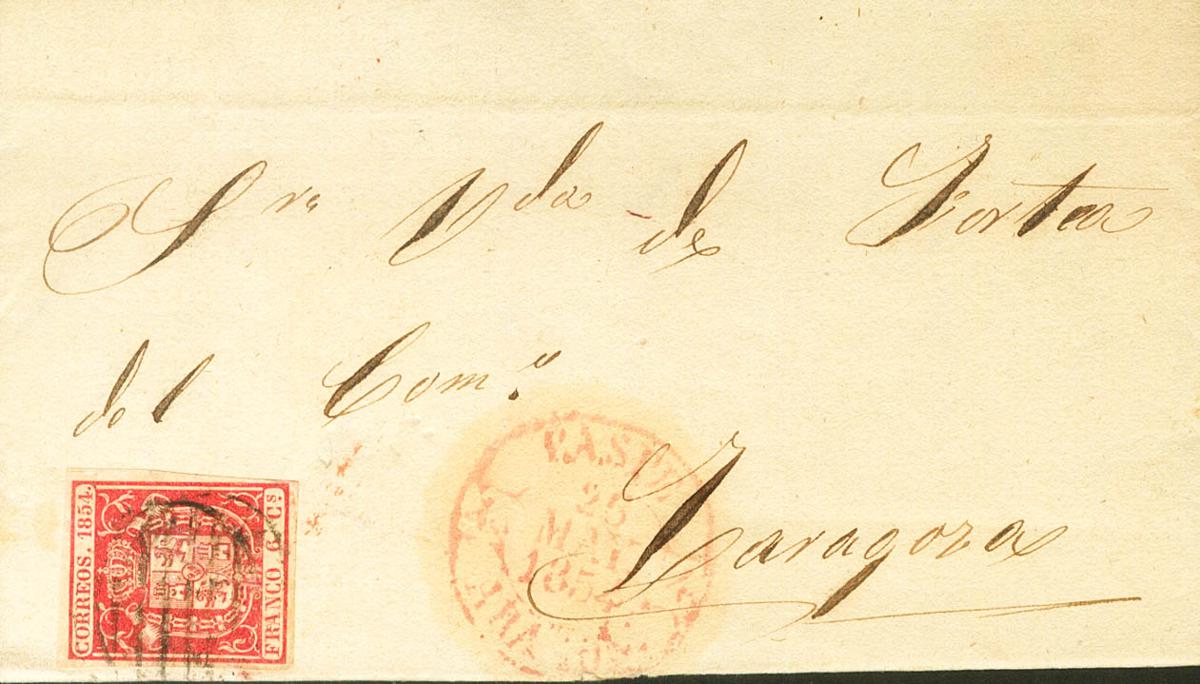 Sra Vda de Fortea
del Como
Zaragoza
CORREOS. 1854.
FRANCO. 6 Cs
25
1854